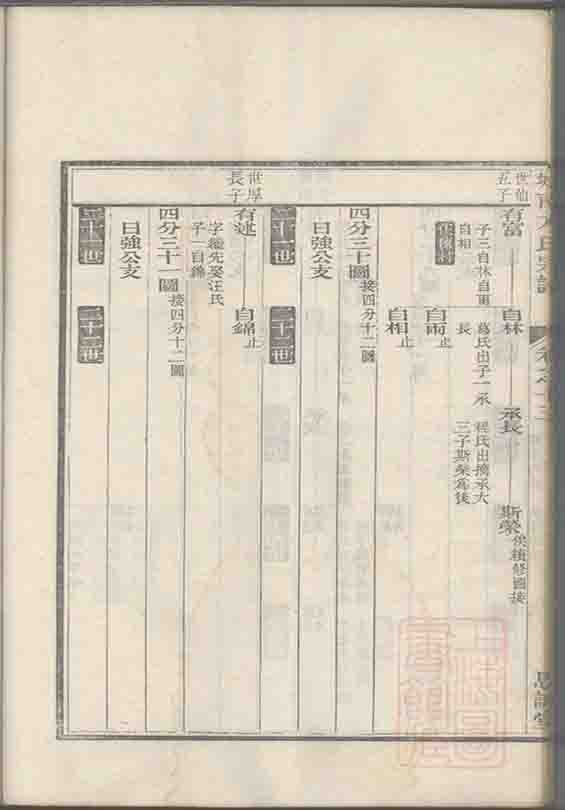 世仙
五子
有富
子三自林自雨
自相
自林
承長
斯榮
俟續修圖接
葛氏出子一承
長
程氏出擕承大
三子斯榮爲後
自雨止
自相止
四分三十圖接四分十二圖
日強公支
三十一世
三十二世
世厚
長子
有述
字繼先娶汪氏
子一自錦
自錦止
四分三十一圖接四分十二圖
日強公支
三十一世
三十二世
上海圖書館藏